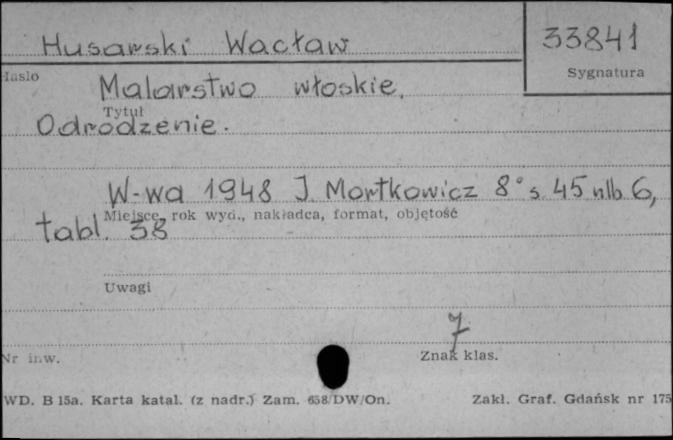 Husarski Wacław
33841
Hasło
Sygnatura
Malarstwo włoskie.
Tytuł
Odrodzenie.
W-wa 1948 J. Mortkowicz 8° s. 45 nlb 6,
Miejsce, rok wyd., nakładca, format, objętość
tabl. 38
Uwagi
7
Nr inw.
Znak klas.
WD. B 15a. Karta katal. (z nadr.) Zam. 658/DW/On.
Zakł. Graf. Gdańsk nr 175